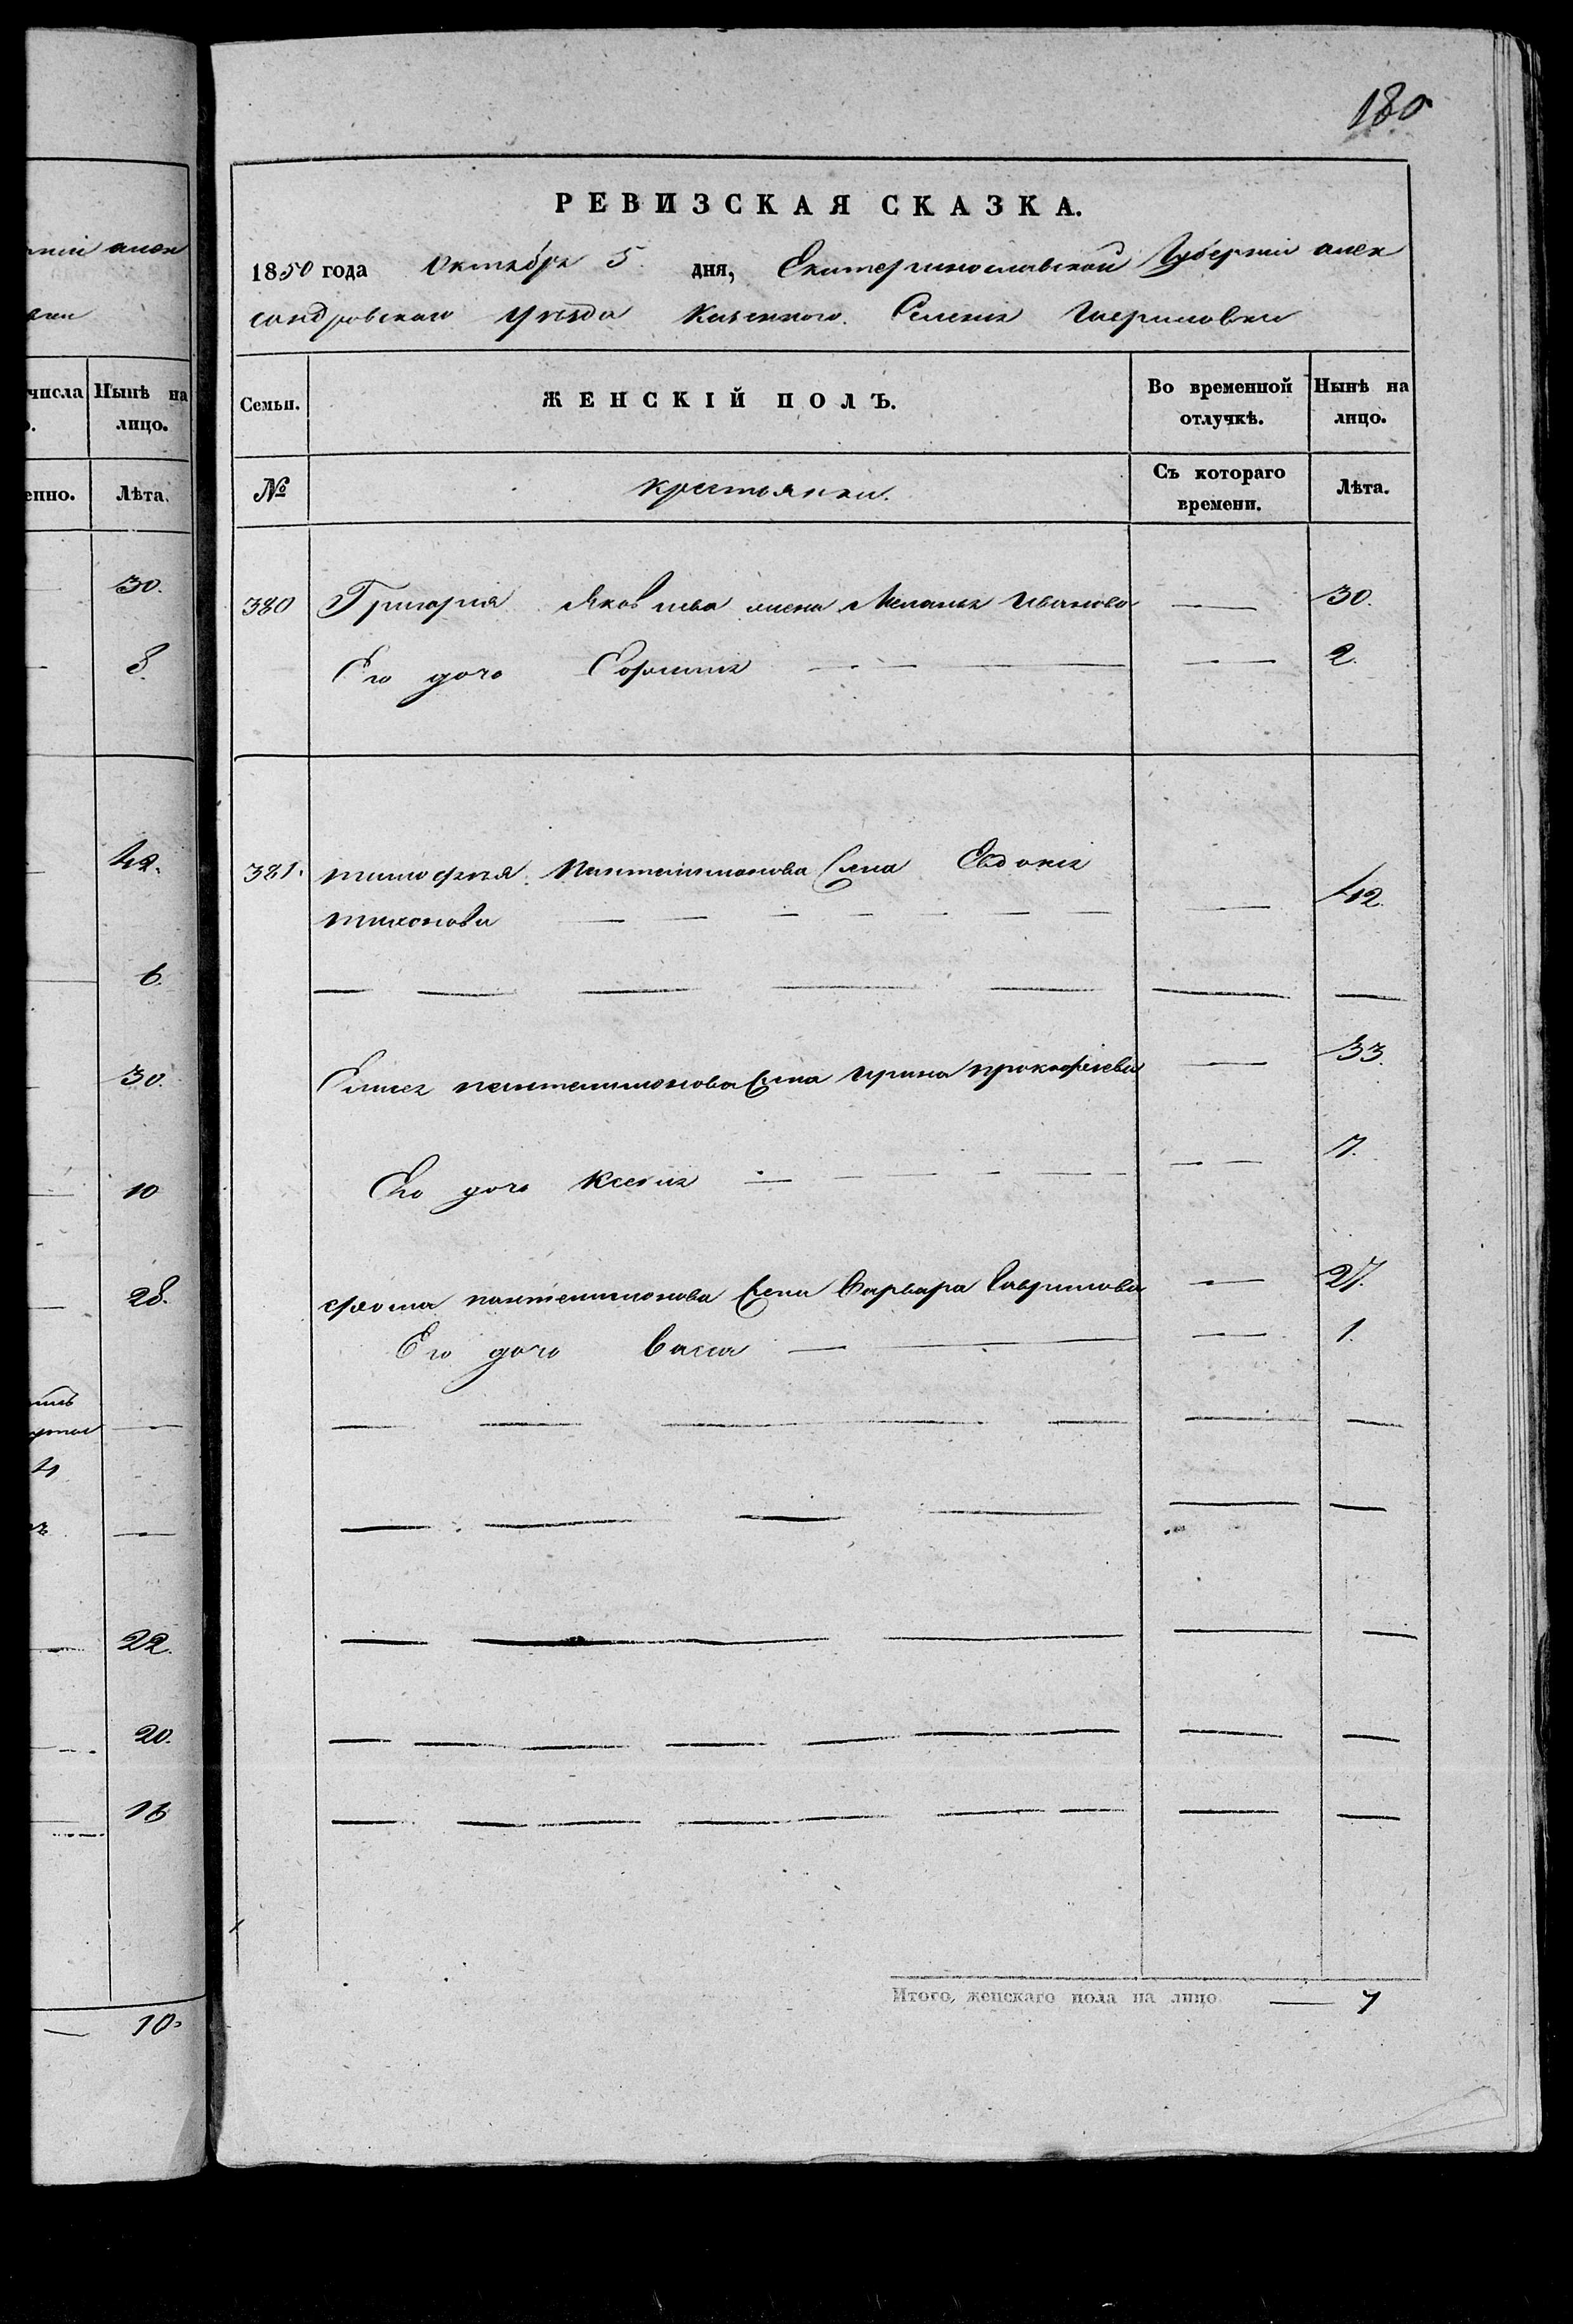 180
РЕВИЗСКАЯ СКАЗКА.
1850 года Октября 5 дня, Екатеринославской Губернии алек
сандровскаго уезда Казенного Селения
Семьи. ЖЕНСКІЙ ПОЛЪ. Во временной отлучкѣ. Нынѣ на лицо.
№ крестьянки. Съ котораго времени. Лѣта.
380 Григория Яковлева жена Меланья Иванова — 30.
Его дочь — — — — 2.
381. тимофея Пантелимонова жена Евдокия
тихонова — — — — — — — — 42.
— — — — — — —
Елисея пантелимонова жена Ирина прокофиева — 33.
Его дочь Ксения — — — — — — 7.
фома пантелимонова жена Варвара Гаврилова — 27.
Его дочь Васса — — — 1.
— — — — — —
— — — — — —
— — — — —
— — — — — — — —
— — — — — — — — —
Итого, женскаго пола на лицо — 7
алек
числа Нынѣ на лицо.
Лѣта.
30.
8.
42.
6.
30.
10
28.
—
—
22.
20.
16
— 10.